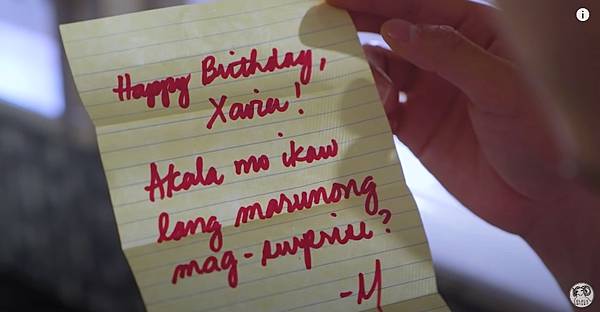 Happy Birthday,
Xavier!
Akala mo ikaw
lang marunong
mag-surprise?
-M